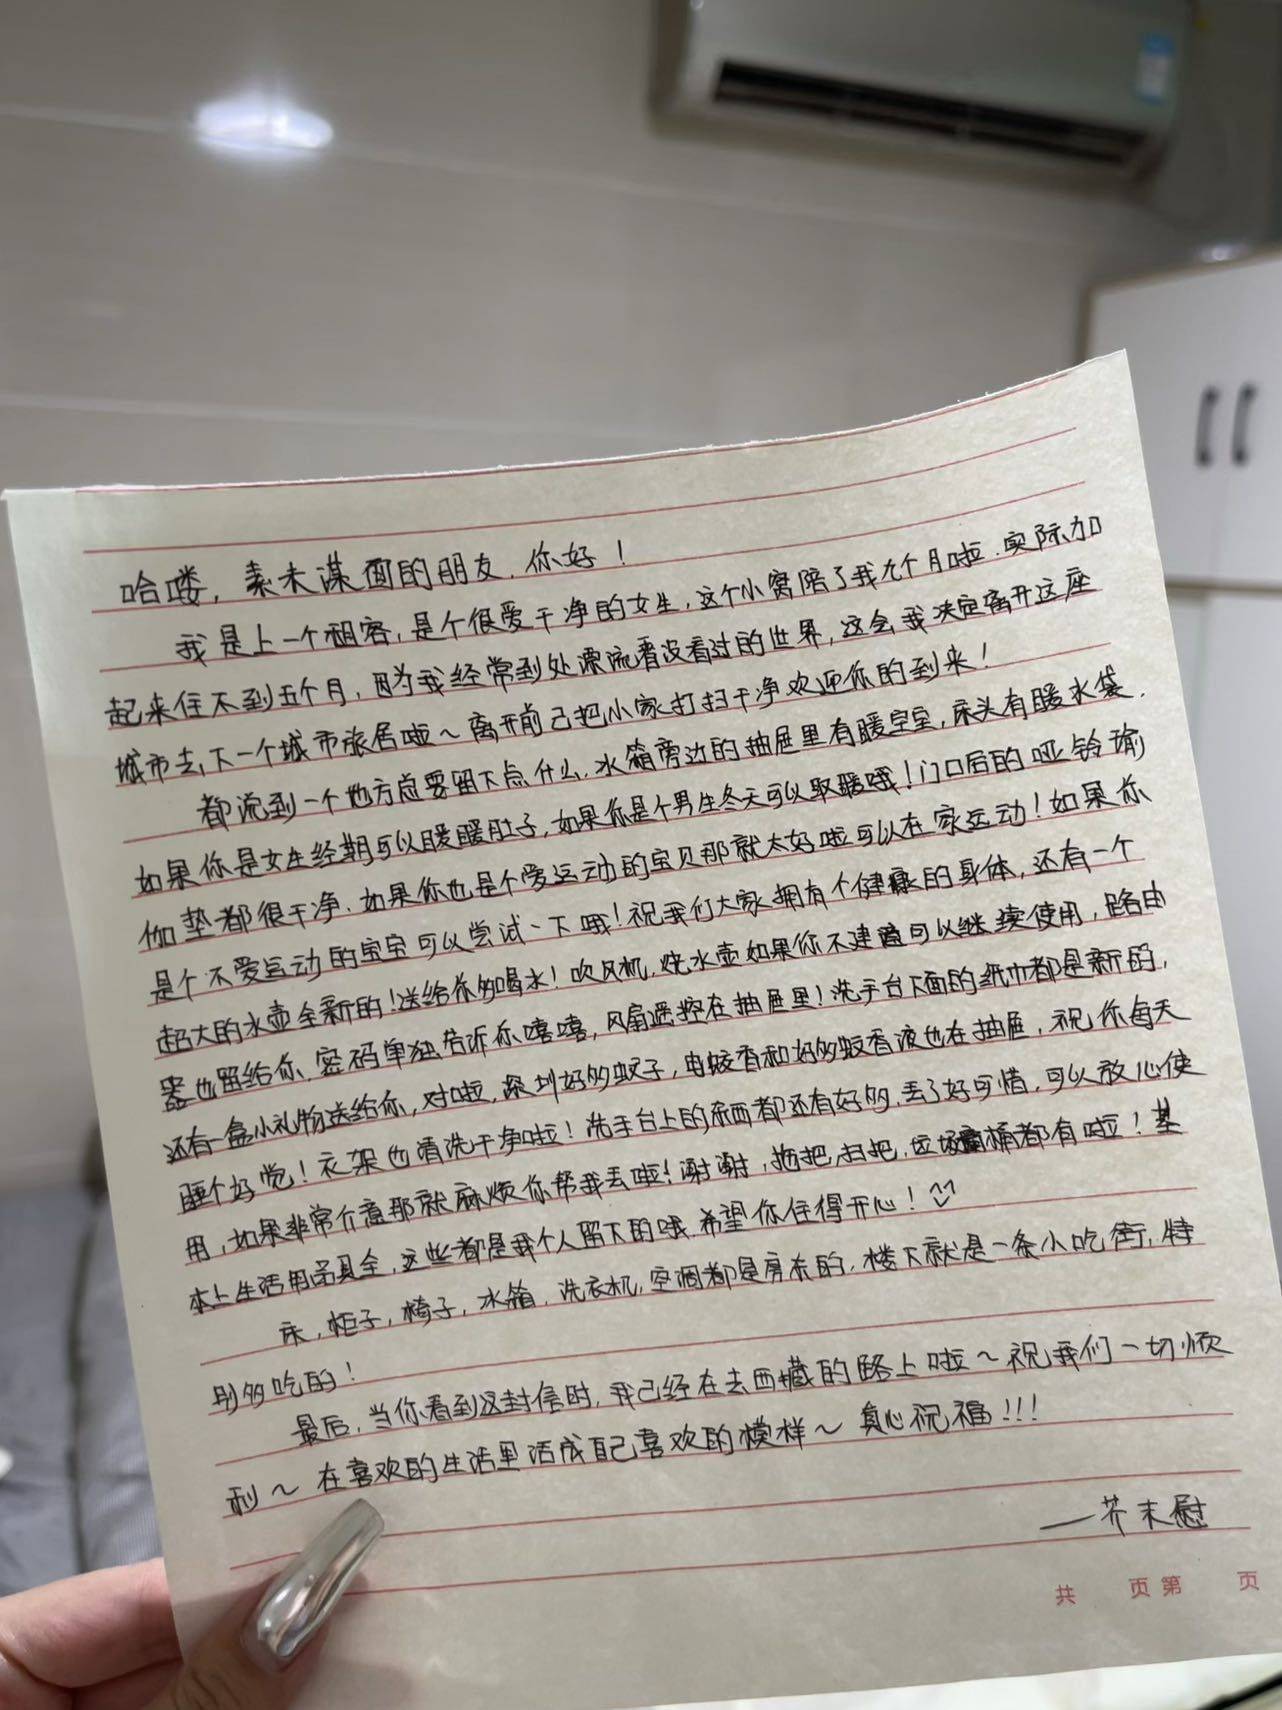 哈喽，素未谋面的朋友，你好！
我是上一个租客，是个很爱干净的女生，这个小窝陪了我九个月啦，实际加
起来住不到五个月，因为我经常到处漂流看没看过的世界，这会我决定离开这座
城市去下一个城市旅居啦～离开前己把小家打扫干净欢迎你的到来！
都说到一个地方总要留下点什么，水箱旁边的抽屉里有暖宝宝，床头有暖水袋．
如果你是女生经期可以暖暖肚子，如果你是个男生冬天可以取暖哦！门口后的哑铃瑜
伽垫都很干净．如果你也是个爱运动的宝贝那就太好啦可以在家运动！如果你
是个不爱运动的宝宝可以尝试一下哦！祝我们大家拥有个健康的身体，还有一个
超大的水壶全新的！送给你多喝水！吹风机，烧水壶如果你不建意可以继续使用，路由
器也留给你，密码单独告诉你嘻嘻，风扇遥控在抽屉里！洗手台下面的纸巾都是新的，
还有一盒小礼物送给你，对啦，深圳好多蚊子，电蚊香和好多蚊香液也在抽屉，祝你每天
睡个好觉！衣架也清洗干净啦！洗手台上的东西都还有好多，丢了好可惜，可以放心使
用，如果非常介意那就麻烦你帮我丢啦！谢谢，拖把，扫把，垃圾桶都有啦！基
本上生活用品具全，这些都是我个人留下的哦．希望你住得开心！
床，柜子，椅子，冰箱，洗衣机，空调都是房东的，楼下就是一条小吃街，特
别多吃的！
最后，当你看到这封信时，我已经在去西藏的路上啦～祝我们一切顺
利～在喜欢的生活里活成自己喜欢的模样～真心祝福！！！
——芥末慰
共 页 第 页